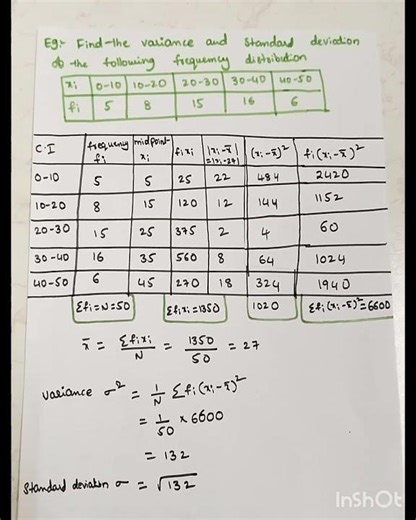 Eg:- Find the variance and standard deviation
of the following frequency distribution
xi 0-10 10-20 20-30 30-40 40-50
fi 5 8 15 16 6
C.I frequency fi midpoint xi fixi |xi-x̄| =|xi-27| (xi-x̄)² fi(xi-x̄)²
0-10 5 5 25 22 484 2420
10-20 8 15 120 12 144 1152
20-30 15 25 375 2 4 60
30-40 16 35 560 8 64 1024
40-50 6 45 270 18 324 1940
Σfi=N=50 Σfixi=1350 1020 Σfi(xi-x̄)²=6600
x̄ = Σfixi/N = 1350/50 = 27
variance σ² = 1/N Σfi(xi-x̄)²
= 1/50 × 6600
= 132
Standard deviation σ = √132
InShOt